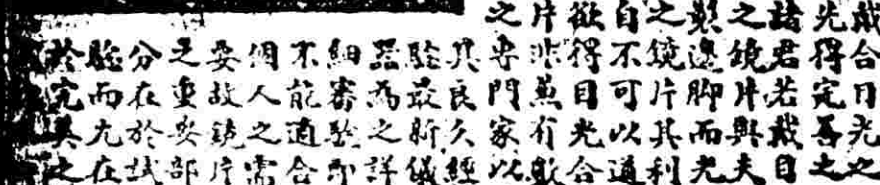 成合目光之
先得完善之
諸君若戴目
之鏡片與夫
製邊脚而光
之鏡片其利
自不可以適
欲得目光合
片非兼有歟
之專門家以
具良久經
驗最新儀
器為之詳
細審騐即
不能適合
個人之需
要故鏡片
之重要部
分在於試
驗而尤在
於完美之